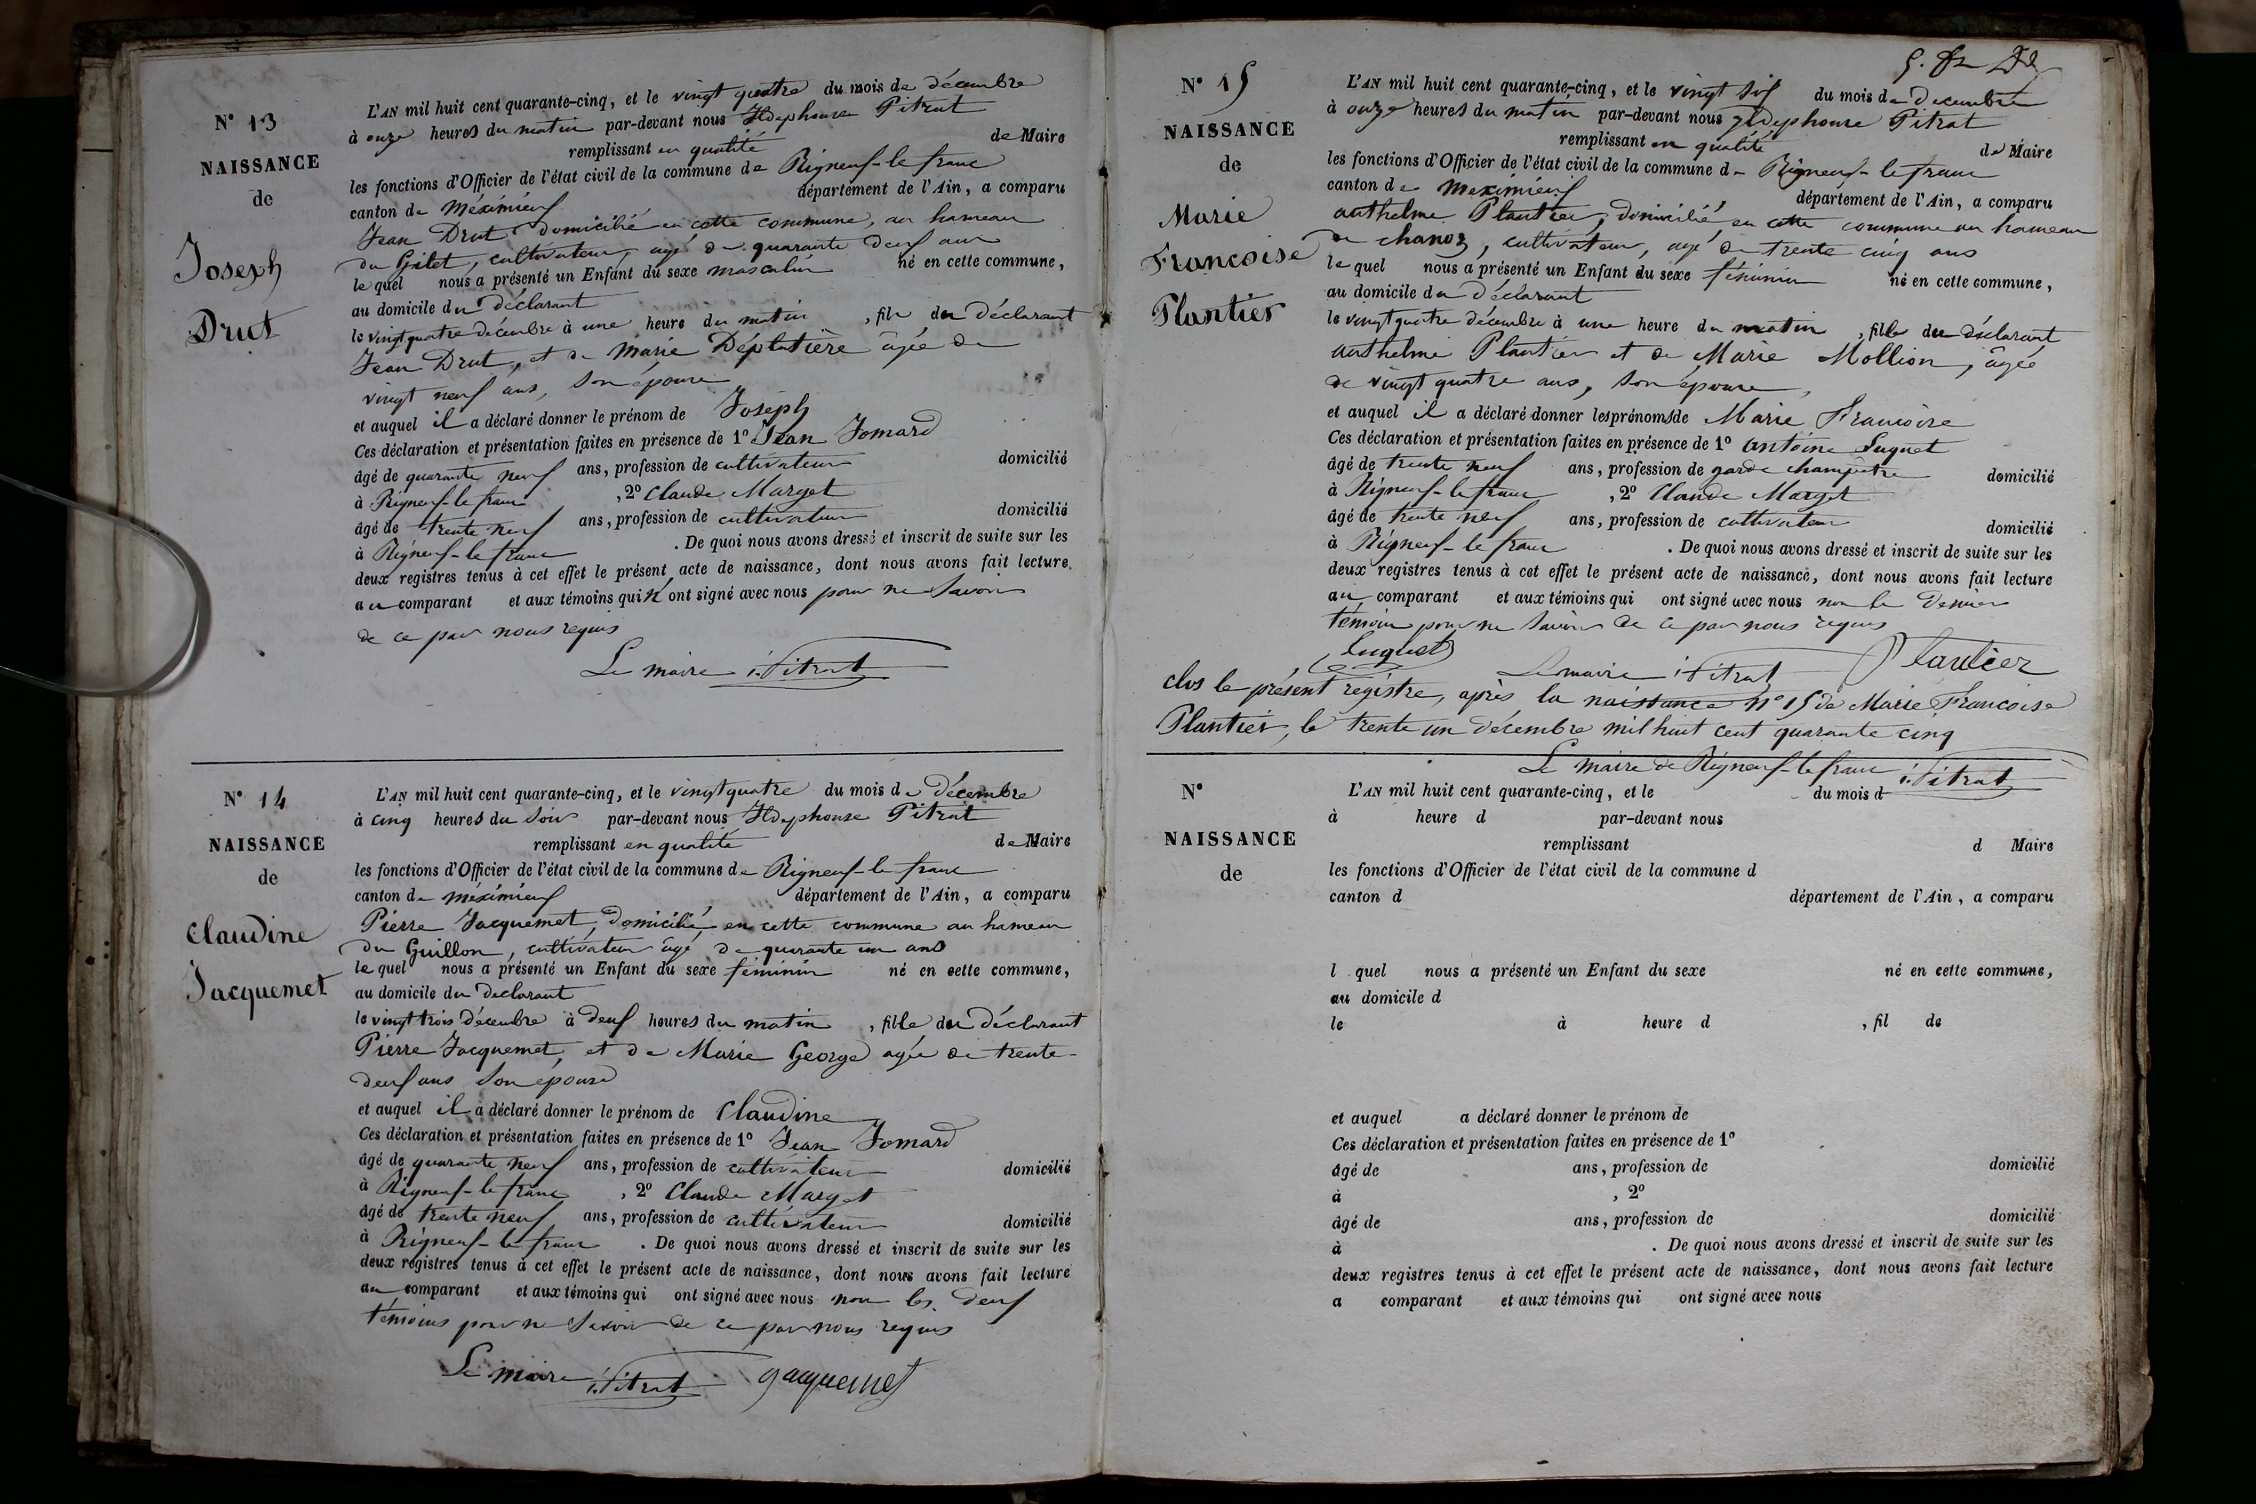 N° 13
NAISSANCE
de
Joseph
Drut
L'AN mil huit cent quarante-cinq, et le vingt quatre du mois de décembre
à onze heures du matin par-devant nous Ildephonse Pitrat
remplissant en qualité de Maire
les fonctions d'Officier de l'état civil de la commune de Rigneux-le franc
canton de Méximieux département de l'Ain, a comparu
Jean Drut domicilié en cette commune, au hameau
du Gilet, cultivateur, agé de quarante deux ans
lequel nous a présenté un Enfant du sexe masculin né en cette commune,
au domicile du Déclarant
le vingt quatre decembre à une heure du matin, fils du Déclarant
Jean Drut, et de Marie Déplatière âgée de
vingt neuf ans, son épouse
et auquel il a déclaré donner le prénom de Joseph
Ces déclaration et présentation faites en présence de 1° Jean Jomard
âgé de quarante neuf ans, profession de cultivateur domicilié
à Rigneux-le franc, 2° Claude Marget
âgé de trente neuf ans, profession de cultivateur domicilié
à Rigneux-le franc. De quoi nous avons dressé et inscrit de suite sur les
deux registres tenus à cet effet le présent acte de naissance, dont nous avons fait lecture
au comparant et aux témoins qui n'ont signé avec nous pour ne savoir
de ce par nous requis
Le maire i. Pitrat
N° 14
NAISSANCE
de
Claudine
Jacquemet
L'AN mil huit cent quarante-cinq, et le vingt quatre du mois de Décembre
à cinq heures du soir par-devant nous Ildephonse Pitrat
remplissant en qualité de Maire
les fonctions d'Officier de l'état civil de la commune de Rigneux-le franc
canton de méximieux département de l'Ain, a comparu
Pierre Jacquemet, domicilié, en cette commune au hameau
du Guillon, cultivateur âgé de quarante un ans
lequel nous a présenté un Enfant du sexe féminin né en cette commune,
au domicile du Declarant
le vingt trois Décembre à deux heures du matin, fille du Déclarant
Pierre Jacquemet, et de Marie George agée de trente-
deux ans son épouse
et auquel il a déclaré donner le prénom de Claudine
Ces déclaration et présentation faites en présence de 1° Jean Jomard
âgé de quarante neuf ans, profession de cultivateur domicilié
à Rigneux-le franc, 2° Claude Marget
âgé de trente neuf ans, profession de cultivateur domicilié
à Rigneux-le franc. De quoi nous avons dressé et inscrit de suite sur les
deux registres tenus à cet effet le présent acte de naissance, dont nous avons fait lecture
au comparant et aux témoins qui ont signé avec nous non les deux
témoins pour ne savoir de ce par nous requis
Le maire i. Pitrat Jacquemet
N° 15
NAISSANCE
de
Marie
Francoise
Plantier
L'AN mil huit cent quarante-cinq, et le vingt six du mois de decembre
à onze heures du matin par-devant nous Ildephonse Pitrat
remplissant en qualité de Maire
les fonctions d'Officier de l'état civil de la commune de Rigneux-le franc
canton de Meximieux département de l'Ain, a comparu
anthelme Plantier, domicilié, en cette commune au hameau
de chanoz, cultivateur, agé de trente cinq ans
lequel nous a présenté un Enfant du sexe féminin né en cette commune,
au domicile du Déclarant
le vingt quatre décembre à une heure du matin, fille du déclarant
anthelme Plantier et de Marie Mollion, âgée
de vingt quatre ans, son épouse,
et auquel il a déclaré donner les prénoms de Marie Francoise
Ces déclaration et présentation faites en présence de 1° antoine Luguet
âgé de trente neuf ans, profession de garde champêtre domicilié
à Rigneux-le franc, 2° Claude Marget
âgé de trente neuf ans, profession de cultivateur domicilié
à Rigneux-le franc. De quoi nous avons dressé et inscrit de suite sur les
deux registres tenus à cet effet le présent acte de naissance, dont nous avons fait lecture
au comparant et aux témoins qui ont signé avec nous non le dernier
témoin pour ne savoir de ce par nous requis
Luguet Le maire i. Pitrat Plantier
clos le présent registre, après la naissance n° 15 de Marie Francoise
Plantier, le trente un décembre mil huit cent quarante cinq
Le maire de Rigneux-le franc i. Pitrat
N°
NAISSANCE
de
L'AN mil huit cent quarante-cinq, et le du mois d
à heure d par-devant nous
remplissant d Maire
les fonctions d'Officier de l'état civil de la commune d
canton d département de l'Ain, a comparu
l quel nous a présenté un Enfant du sexe né en cette commune,
au domicile d
le à heure d , fil de
et auquel a déclaré donner le prénom de
Ces déclaration et présentation faites en présence de 1°
âgé de ans, profession de domicilié
à , 2°
âgé de ans, profession de domicilié
à . De quoi nous avons dressé et inscrit de suite sur les
deux registres tenus à cet effet le présent acte de naissance, dont nous avons fait lecture
a comparant et aux témoins qui ont signé avec nous